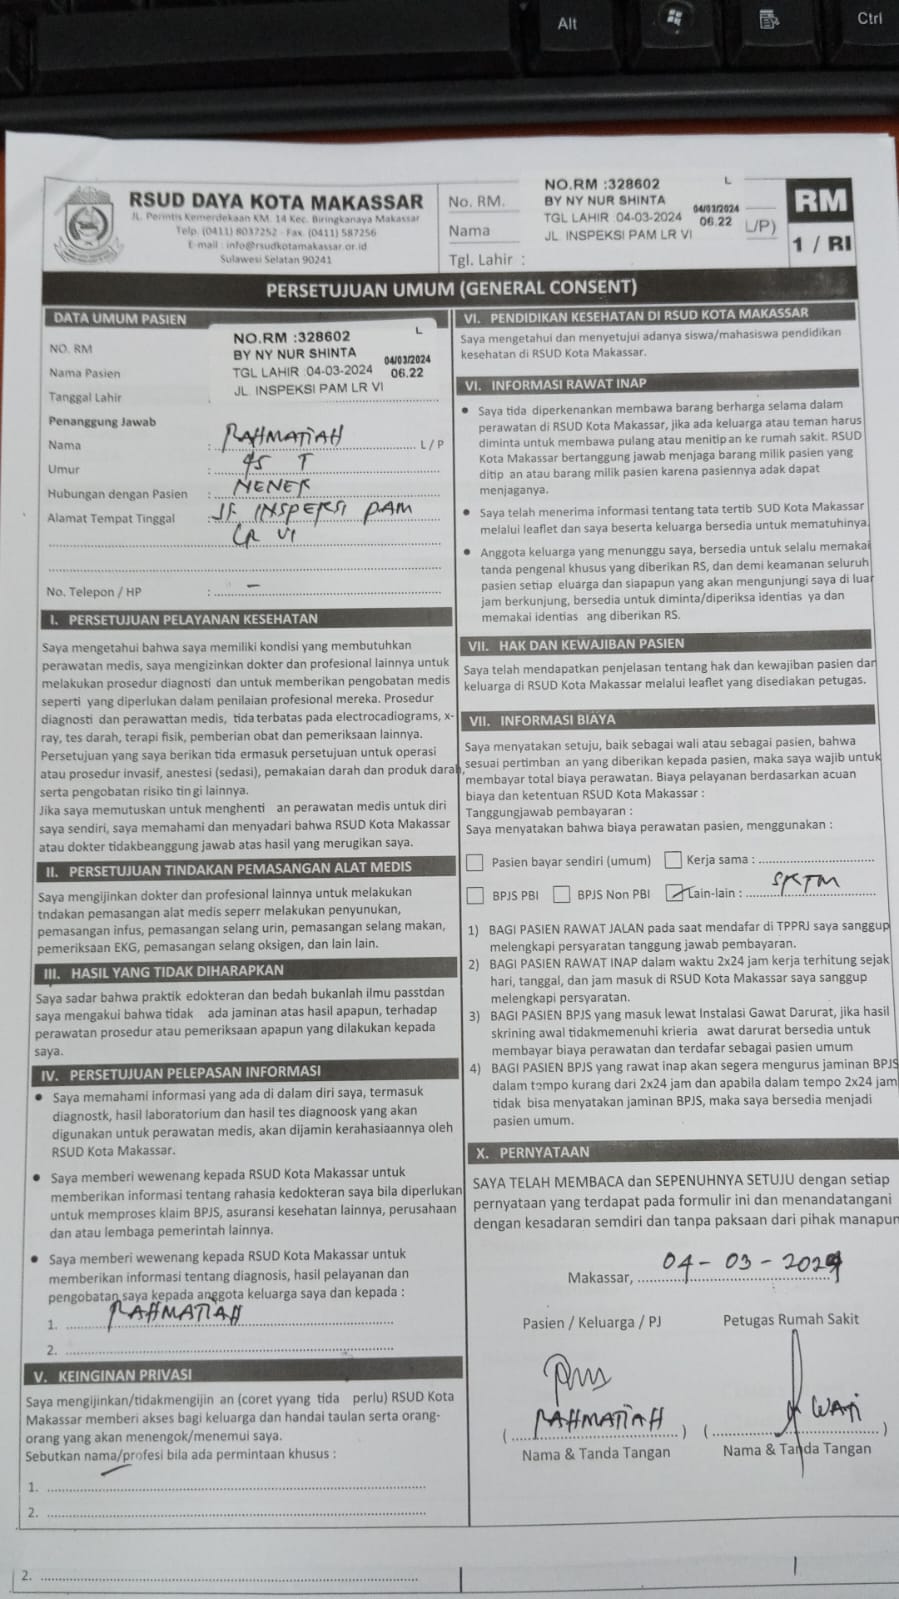 Alt
Ctrl
RSUD DAYA KOTA MAKASSAR
JL. Perintis Kemerdekaan KM. 14 Kec. Biringkanaya Makassar
Telp. (0411) 8037252 - Fax. (0411) 587256
E-mail : info@rsudkotamakassar.or.id
Sulawesi Selatan 90241
No. RM.
Nama
Tgl. Lahir :
NO.RM :328602 L
BY NY NUR SHINTA 04/03/2024
TGL LAHIR 04-03-2024 06.22
JL. INSPEKSI PAM LR VI
L/P)
RM
1 / RI
PERSETUJUAN UMUM (GENERAL CONSENT)
DATA UMUM PASIEN
NO. RM
Nama Pasien
Tanggal Lahir
NO.RM :328602 L
BY NY NUR SHINTA 04/03/2024
TGL LAHIR 04-03-2024 06.22
JL. INSPEKSI PAM LR VI
Penanggung Jawab
Nama : RAHMATIAH L / P
Umur : 45 T
Hubungan dengan Pasien : NENEK
Alamat Tempat Tinggal : Jl INSPEKSI PAM
LR VI
No. Telepon / HP : -
I. PERSETUJUAN PELAYANAN KESEHATAN
Saya mengetahui bahwa saya memiliki kondisi yang membutuhkan
perawatan medis, saya mengizinkan dokter dan profesional lainnya untuk
melakukan prosedur diagnosti dan untuk memberikan pengobatan medis
seperti yang diperlukan dalam penilaian profesional mereka. Prosedur
diagnosti dan perawattan medis, tida terbatas pada electrocadiograms, x-
ray, tes darah, terapi fisik, pemberian obat dan pemeriksaan lainnya.
Persetujuan yang saya berikan tida ermasuk persetujuan untuk operasi
atau prosedur invasif, anestesi (sedasi), pemakaian darah dan produk darah,
serta pengobatan risiko tin gi lainnya.
Jika saya memutuskan untuk menghenti an perawatan medis untuk diri
saya sendiri, saya memahami dan menyadari bahwa RSUD Kota Makassar
atau dokter tidakbeanggung jawab atas hasil yang merugikan saya.
II. PERSETUJUAN TINDAKAN PEMASANGAN ALAT MEDIS
Saya mengijinkan dokter dan profesional lainnya untuk melakukan
tndakan pemasangan alat medis seperr melakukan penyunukan,
pemasangan infus, pemasangan selang urin, pemasangan selang makan,
pemeriksaan EKG, pemasangan selang oksigen, dan lain lain.
III. HASIL YANG TIDAK DIHARAPKAN
Saya sadar bahwa praktik edokteran dan bedah bukanlah ilmu passtdan
saya mengakui bahwa tidak ada jaminan atas hasil apapun, terhadap
perawatan prosedur atau pemeriksaan apapun yang dilakukan kepada
saya.
IV. PERSETUJUAN PELEPASAN INFORMASI
● Saya memahami informasi yang ada di dalam diri saya, termasuk
diagnostk, hasil laboratorium dan hasil tes diagnoosk yang akan
digunakan untuk perawatan medis, akan dijamin kerahasiaannya oleh
RSUD Kota Makassar.
● Saya memberi wewenang kepada RSUD Kota Makassar untuk
memberikan informasi tentang rahasia kedokteran saya bila diperlukan
untuk memproses klaim BPJS, asuransi kesehatan lainnya, perusahaan
dan atau lembaga pemerintah lainnya.
● Saya memberi wewenang kepada RSUD Kota Makassar untuk
memberikan informasi tentang diagnosis, hasil pelayanan dan
pengobatan saya kepada anggota keluarga saya dan kepada :
1. RAHMATIAH
2.
V. KEINGINAN PRIVASI
Saya mengijinkan/tidakmengijin an (coret yyang tida perlu) RSUD Kota
Makassar memberi akses bagi keluarga dan handai taulan serta orang-
orang yang akan menengok/menemui saya.
Sebutkan nama/profesi bila ada permintaan khusus :
1.
2.
2.
VI. PENDIDIKAN KESEHATAN DI RSUD KOTA MAKASSAR
Saya mengetahui dan menyetujui adanya siswa/mahasiswa pendidikan
kesehatan di RSUD Kota Makassar.
VI. INFORMASI RAWAT INAP
● Saya tida diperkenankan membawa barang berharga selama dalam
perawatan di RSUD Kota Makassar, jika ada keluarga atau teman harus
diminta untuk membawa pulang atau menitip an ke rumah sakit. RSUD
Kota Makassar bertanggung jawab menjaga barang milik pasien yang
ditip an atau barang milik pasien karena pasiennya adak dapat
menjaganya.
● Saya telah menerima informasi tentang tata tertib SUD Kota Makassar
melalui leaflet dan saya beserta keluarga bersedia untuk mematuhinya.
● Anggota keluarga yang menunggu saya, bersedia untuk selalu memakai
tanda pengenal khusus yang diberikan RS, dan demi keamanan seluruh
pasien setiap eluarga dan siapapun yang akan mengunjungi saya di luar
jam berkunjung, bersedia untuk diminta/diperiksa identias ya dan
memakai identias ang diberikan RS.
VII. HAK DAN KEWAJIBAN PASIEN
Saya telah mendapatkan penjelasan tentang hak dan kewajiban pasien dan
keluarga di RSUD Kota Makassar melalui leaflet yang disediakan petugas.
VII. INFORMASI BIAYA
Saya menyatakan setuju, baik sebagai wali atau sebagai pasien, bahwa
sesuai pertimban an yang diberikan kepada pasien, maka saya wajib untuk
membayar total biaya perawatan. Biaya pelayanan berdasarkan acuan
biaya dan ketentuan RSUD Kota Makassar :
Tanggungjawab pembayaran :
Saya menyatakan bahwa biaya perawatan pasien, menggunakan :
Pasien bayar sendiri (umum) Kerja sama :
BPJS PBI BPJS Non PBI Lain-lain : SKTM
1) BAGI PASIEN RAWAT JALAN pada saat mendafar di TPPRJ saya sanggup
melengkapi persyaratan tanggung jawab pembayaran.
2) BAGI PASIEN RAWAT INAP dalam waktu 2x24 jam kerja terhitung sejak
hari, tanggal, dan jam masuk di RSUD Kota Makassar saya sanggup
melengkapi persyaratan.
3) BAGI PASIEN BPJS yang masuk lewat Instalasi Gawat Darurat, jika hasil
skrining awal tidakmemenuhi krieria awat darurat bersedia untuk
membayar biaya perawatan dan terdafar sebagai pasien umum
4) BAGI PASIEN BPJS yang rawat inap akan segera mengurus jaminan BPJS
dalam tempo kurang dari 2x24 jam dan apabila dalam tempo 2x24 jam
tidak bisa menyatakan jaminan BPJS, maka saya bersedia menjadi
pasien umum.
X. PERNYATAAN
SAYA TELAH MEMBACA dan SEPENUHNYA SETUJU dengan setiap
pernyataan yang terdapat pada formulir ini dan menandatangani
dengan kesadaran semdiri dan tanpa paksaan dari pihak manapun
Makassar, 04 - 03 - 2024
Pasien / Keluarga / PJ Petugas Rumah Sakit
( RAHMATIAH ) ( WATI )
Nama & Tanda Tangan Nama & Tanda Tangan